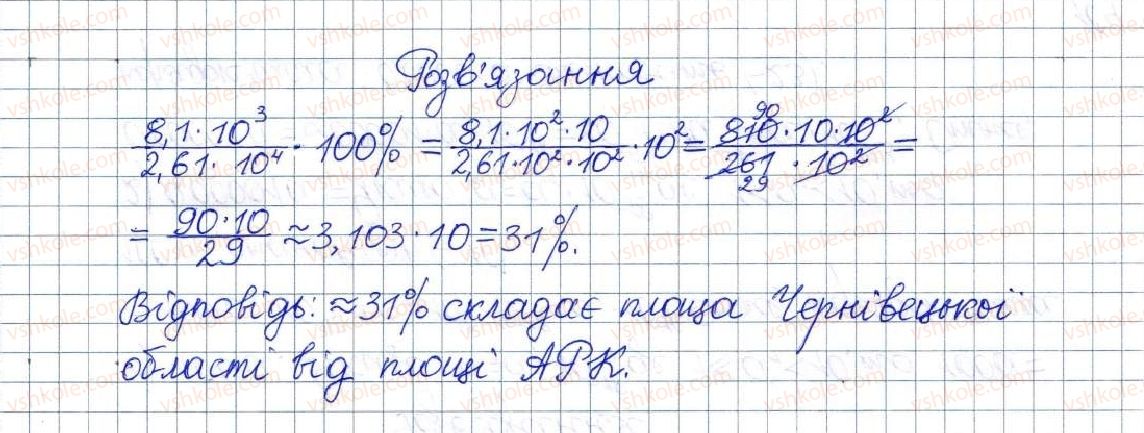 Розв'язання
8,1·10³ / 2,61·10⁴ · 100% = 8,1·10²·10 / 2,61·10²·10² · 10² = 810·10·10² / 261·10² =
90
29
= 90·10 / 29 ≈ 3,103·10 = 31%.
Відповідь: ≈31% складає площа Чернівецької
області від площі АРК.